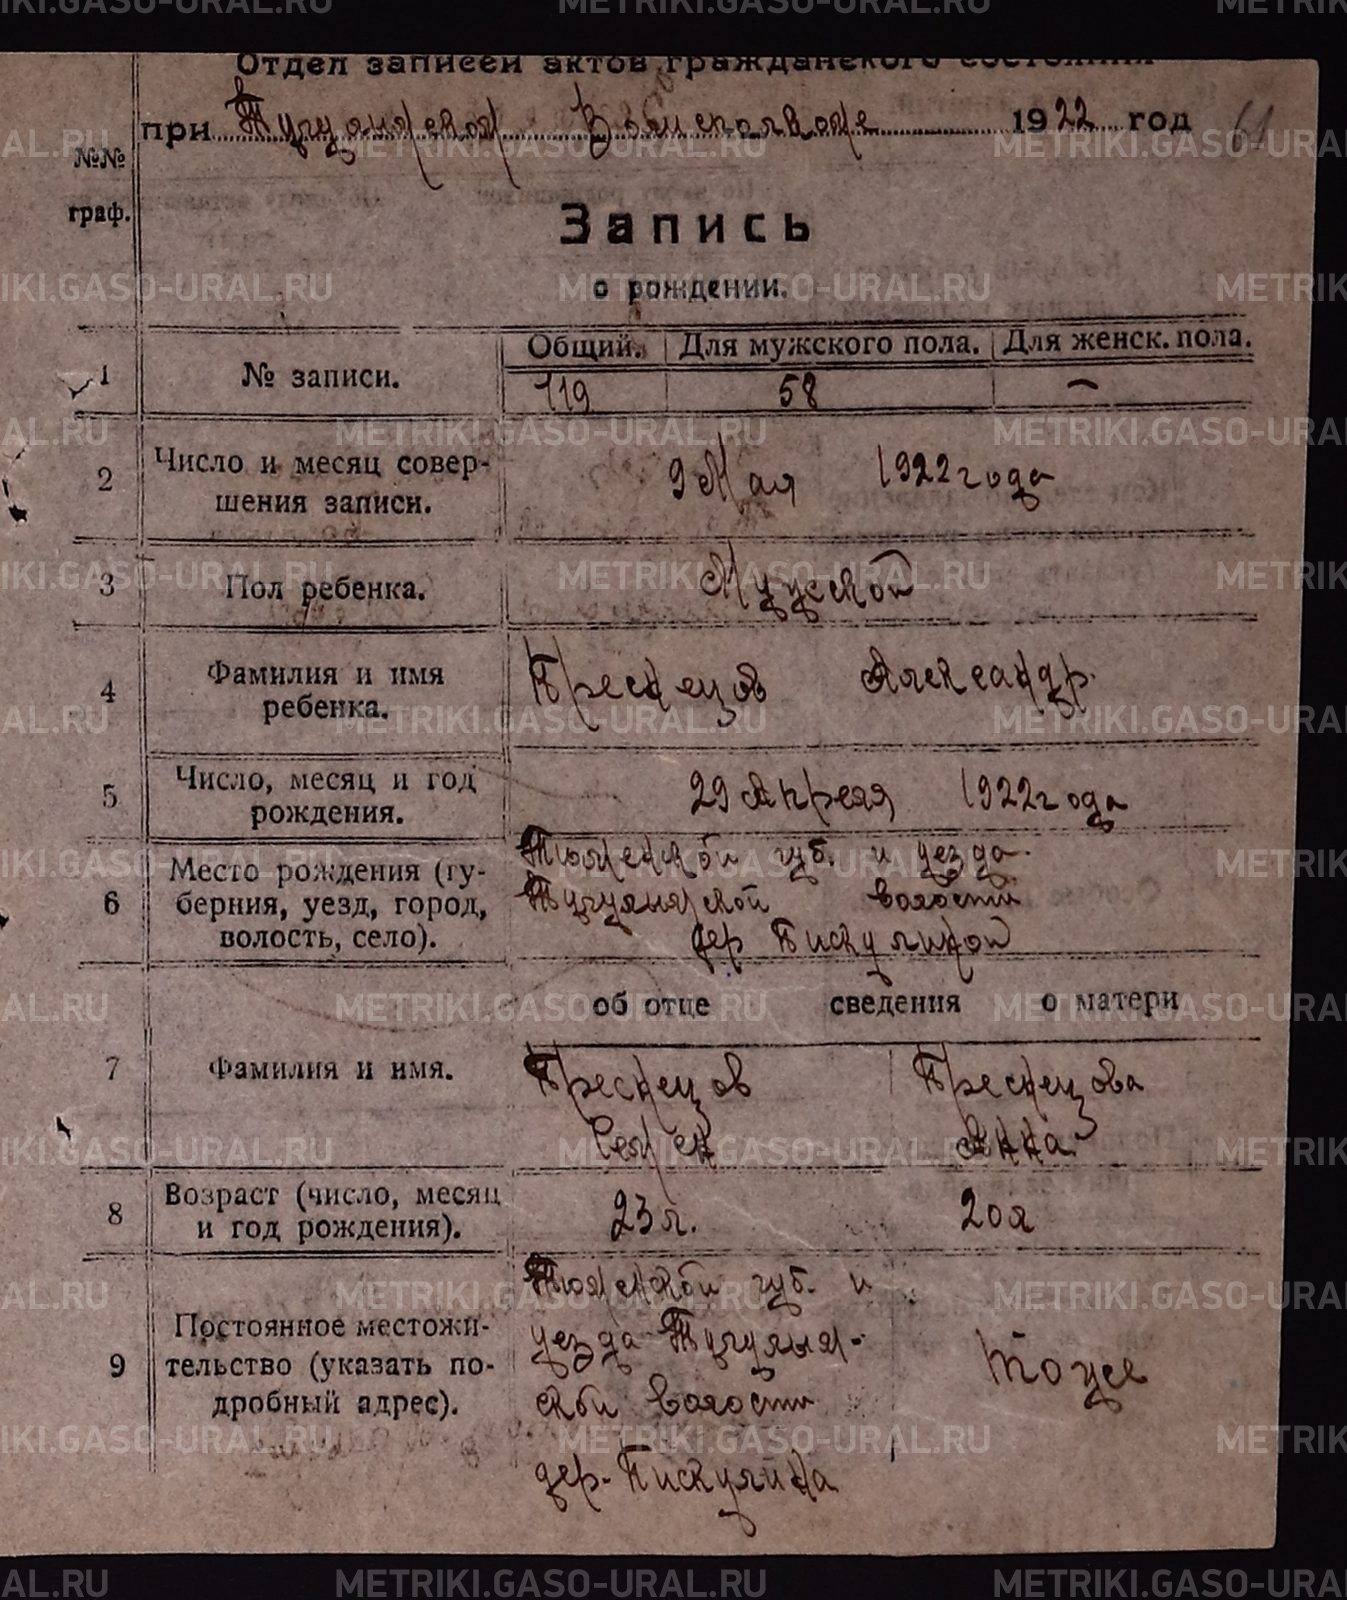 Отдел записей актов гражданского состояния
при Тугулымском Волисполкоме 1922 год 61
№№
граф.
Запись
о рождении.
Общий. Для мужского пола. Для женск. пола.
1 № записи. 119 58 —
2 Число и месяц совер-
шения записи. 9 Мая 1922 года
3 Пол ребенка. Мужской
4 Фамилия и имя
ребенка. Александр.
5 Число, месяц и год
рождения. 29 Апреля 1922 года
6 Место рождения (гу-
берния, уезд, город,
волость, село).
Тюменской губ. и уезда
волости
дер Пискулиной
об отце сведения о матери
7 Фамилия и имя.
Семен Анна
8 Возраст (число, месяц
и год рождения). 23 л. 20 л
9 Постоянное местожи-
тельство (указать по-
дробный адрес).
Тюменской губ. и
уезда
ской волости
дер. Пискулина
тоже
METRIKI.GASO-URAL.RU